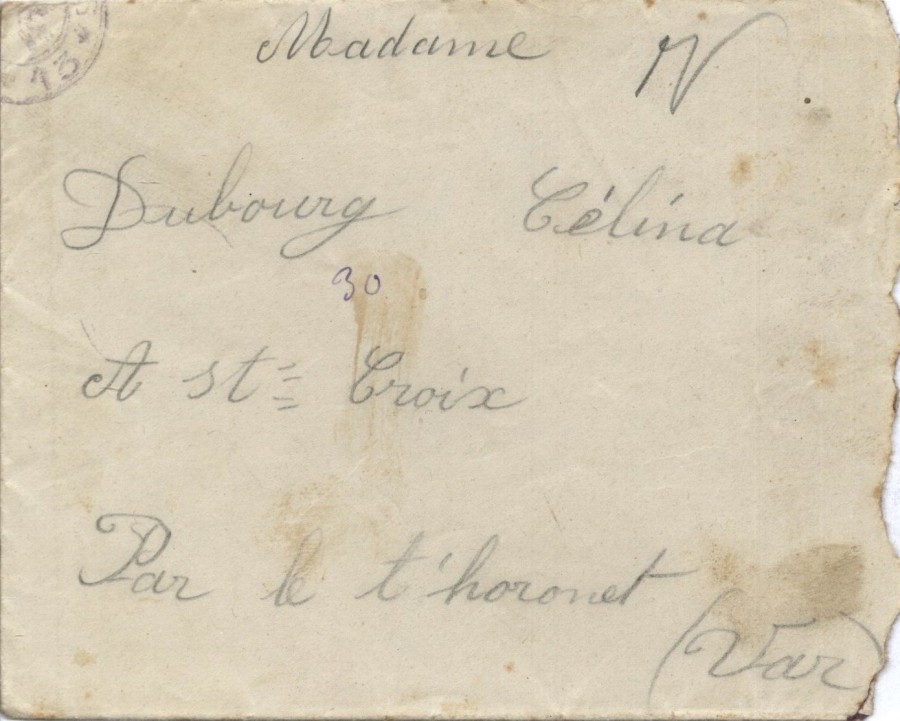 Madame
Dubourg Célina
30
A st= Croix
Par le t'horonet
(Var)
13